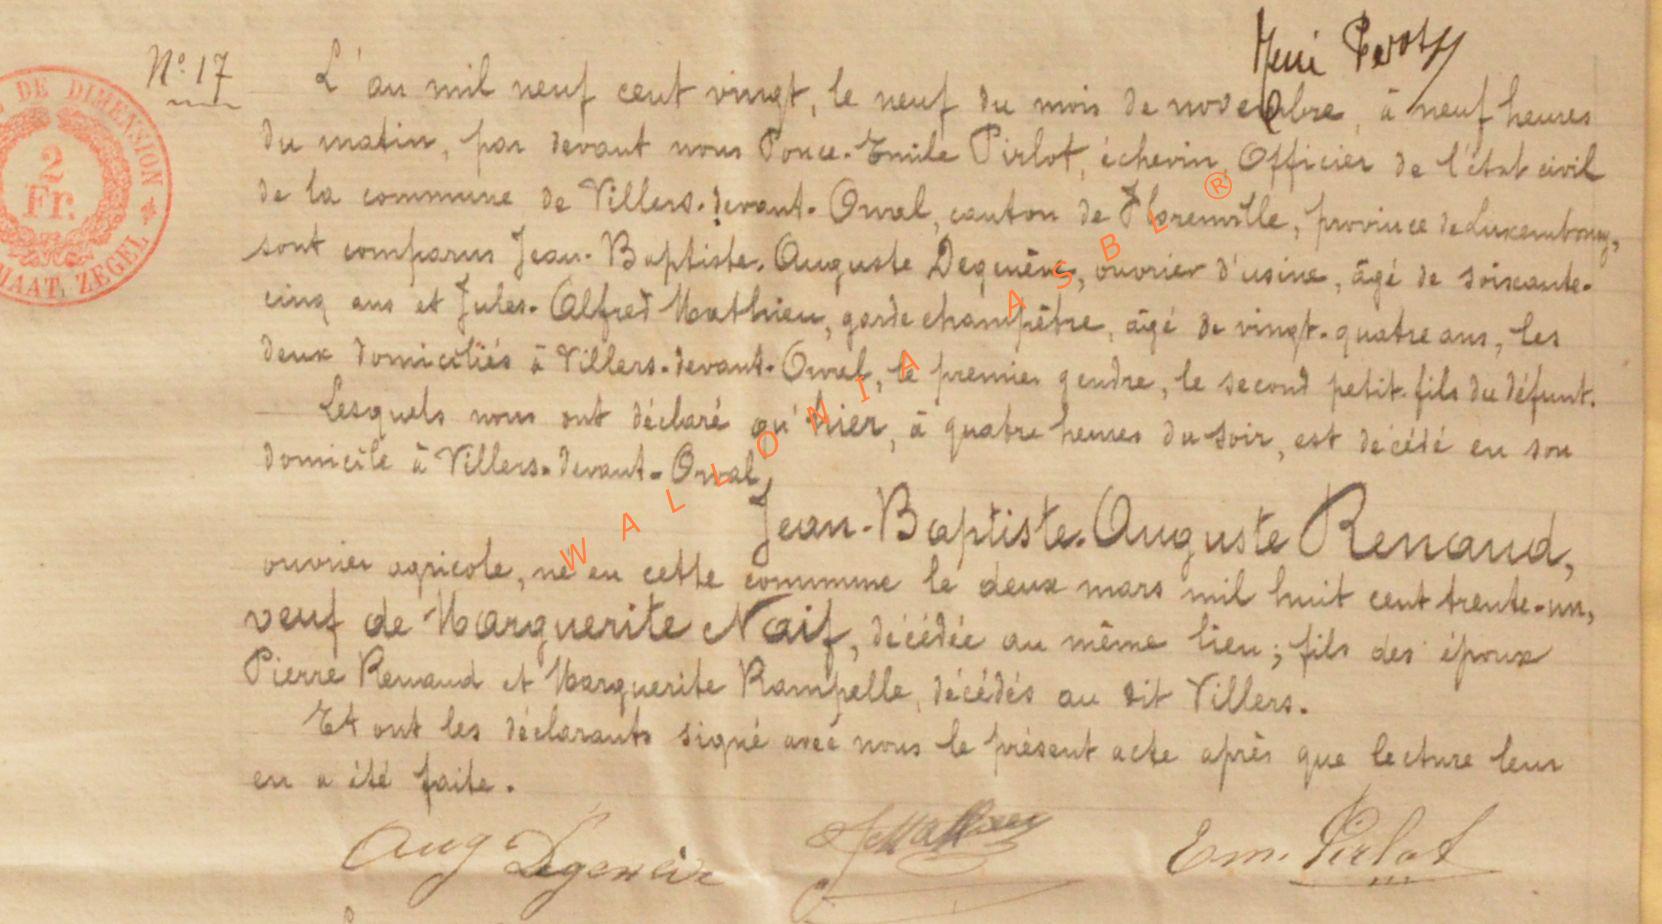 Henri Perot
N° 17
L'an mil neuf cent vingt, le neuf du mois de novembre, à neuf heures
du matin, par devant nous Ponce-Emile Pirlot, échevin, Officier de l'état civil
de la commune de Villers-devant-Orval, canton de Florenville, province de Luxembourg,
sont comparus Jean-Baptiste-Auguste Degenève, ouvrier d'usine, âgé de soixante-
cinq ans et Jules-Alfred Mathieu, garde champêtre, âgé de vingt-quatre ans, les
deux domiciliés à Villers-devant-Orval, le premier gendre, le second petit-fils du défunt.
Lesquels nous ont déclaré qu'hier, à quatre heures du soir, est décédé en son
domicile à Villers-devant-Orval,
Jean-Baptiste-Auguste Renaud,
ouvrier agricole, né en cette commune le deux mars mil huit cent trente-un,
veuf de Marguerite Naif, décédée au même lieu; fils des époux
Pierre Renaud et Marguerite Rampelle, décédés au dit Villers.
Et ont les déclarants signé avec nous le présent acte après que lecture leur
en a été faite.
Aug Degenève
JMathieu
Em. Pirlot
DE DIMENSION
2
Fr.
MAAT. ZEGEL
WALLONIA ASBL ®